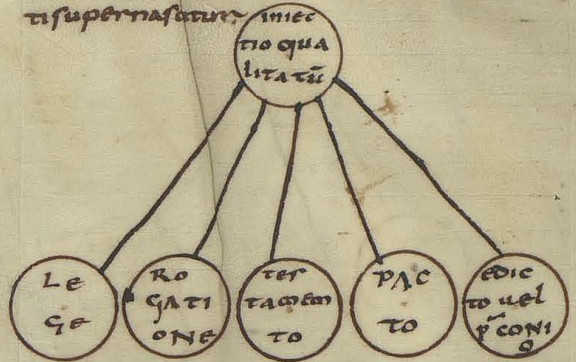 tisupernascitur
iniec
tio qua
litatū
Le
ge
Ro
gati
one
tes
tamen
to
pac
to
edic
to vel
p̄coni
o